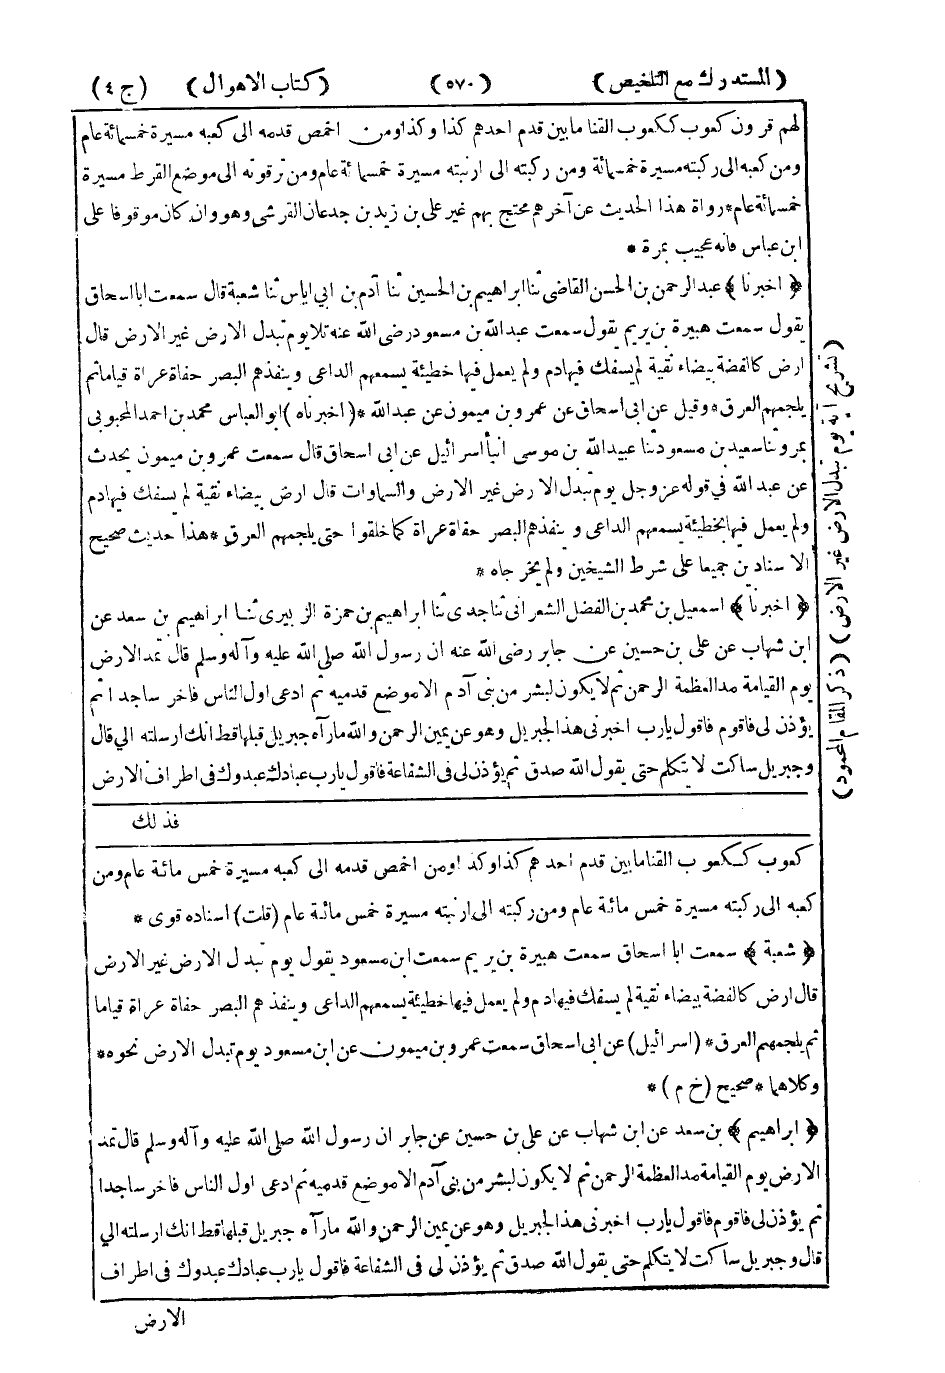 (المستدرك مع التلخيص) (٥٧٠) (كتاب الاهوال) (ج ٤)
لهم قرون كعوب ككعوب القنا مابين قدم احدهم كذا وكذا ومن اخمص قدمه الى كعبه مسيرة خمسمائة عام
ومن كعبه الى ركبته مسيرة خمسمائة ومن ركبته الى ارنبته مسيرة خمسمائة عام ومن ترقوته الى موضع القرط مسيرة
خمسمائة عام * رواة هذا الحديث عن آخرهم محتج بهم غير على بن زيد بن جدعان القرشى وهو وان كان موقوفا على
ابن عباس فانه عجيب بمرة *
﴿ اخبرنا ﴾ عبد الرحمن بن الحسن القاضى ثنا ابراهيم بن الحسين ثنا آدم بن ابى اياس ثنا شعبة قال سمعت ابا اسحاق
يقول سمعت هبيرة بن يريم يقول سمعت عبد الله بن مسعود رضى الله عنه تلا يوم تبدل الارض غير الارض قال
ارض كالفضة بيضاء نقية لم يسفك فيها دم ولم يعمل فيها خطيئة يسمعهم الداعى وينفذهم البصر حفاة عراة قياما ثم
يلجمهم العرق * وقيل عن ابى اسحاق عن عمرو بن ميمون عن عبد الله * ( اخبرناه ) ابو العباس محمد بن احمد المحبوبى
بمرو ثنا سعيد بن مسعود ثنا عبيد الله بن موسى انبأ اسرائيل عن ابى اسحاق قال سمعت عمرو بن ميمون يحدث
عن عبد الله فى قوله عز وجل يوم تبدل الارض غير الارض والسماوات قال ارض بيضاء نقية لم يسفك فيها دم
ولم يعمل فيها بخطيئة يسمعهم الداعى و ينفذهم البصر حفاة عراة كما خلقوا حتى يلجمهم العرق * هذا حديث صحيح
الاسناد بن جميعا على شرط الشيخين ولم يخرجاه *
﴿ اخبرنا ﴾ اسمعيل بن محمد بن الفضل الشعرانى ثنا جدى ثنا ابراهيم بن حمزة الزبيرى ثنا ابراهيم بن سعد عن
ابن شهاب عن على بن حسين عن جابر رضى الله عنه ان رسول الله صلى الله عليه وآله وسلم قال تمد الارض
يوم القيامة مد العظمة الرحمن ثم لا يكون لبشر من بنى آدم الا موضع قدميه ثم ادعى اول الناس فاخر ساجدا ثم
يؤذن لى فاقوم فاقول يارب اخبرنى هذا لجبريل وهو عن يمين الرحمن والله مارآه جبريل قبلها قط انك ارسلته الي قال
وجبريل ساكت لا يتكلم حتى يقول الله صدق ثم يؤذن لى فى الشفاعة فاقول يارب عبادك عبدوك فى اطراف الارض
فذلك
(شرح آية يوم تبدل الارض غير الارض) (ذكر المقام المحمود)
كعوب ككعوب القنا مابين قدم احدهم كذا وكذا ومن اخمص قدمه الى كعبه مسيرة خمس مائة عام ومن
كعبه الى ركبته مسيرة خمس مائة عام ومن ركبته الى ارنبته مسيرة خمس مائة عام (قلت) اسناده قوى *
﴿ شعبة ﴾ سمعت ابا اسحاق سمعت هبيرة بن يريم سمعت ابن مسعود يقول يوم تبدل الارض غير الارض
قال ارض كالفضة بيضاء نقية لم يسفك فيها دم ولم يعمل فيها خطيئة يسمعهم الداعى وينفذهم البصر حفاة عراة قياما
ثم يلجمهم العرق * (اسرائيل) عن ابى اسحاق سمعت عمرو بن ميمون عن ابن مسعود يوم تبدل الارض نحوه *
وكلاهما * صحيح (خ م) *
﴿ ابراهيم ﴾ بن سعد عن ابن شهاب عن على بن حسين عن جابر ان رسول الله صلى الله عليه وآله وسلم قال تمد
الارض يوم القيامة مد العظمة الرحمن ثم لا يكون لبشر من بنى آدم الا موضع قدميه ثم ادعى اول الناس فاخر ساجدا
ثم يؤذن لى فاقوم فاقول يارب اخبرنى هذا لجبريل وهو عن يمين الرحمن والله مارآه جبريل قبلها قط انك ارسلته الي
قال وجبريل ساكت لا يتكلم حتى يقول الله صدق ثم يؤذن لى فى الشفاعة فاقول يارب عبادك عبدوك فى اطراف
الارض